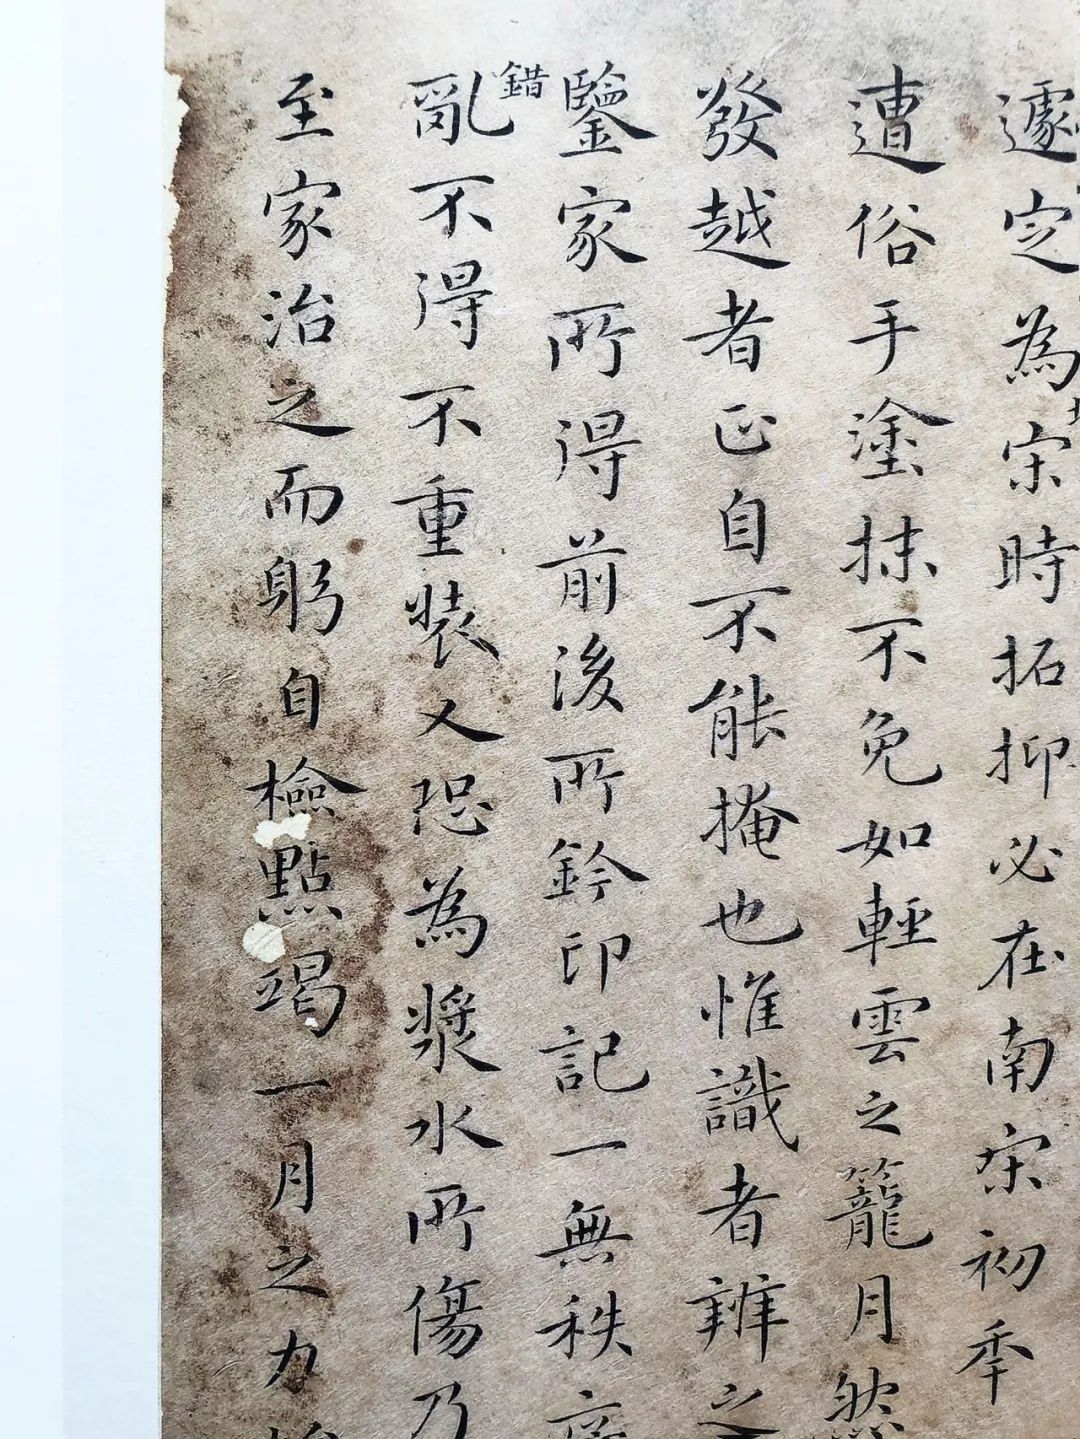 遽定為宋時拓抑必在南宋初年
遭俗手塗抹不免如輕雲之籠月然
發越者正自不能掩也惟識者辨之
鑒家所得前後所鈐印記一無秩
錯
亂不得不重裝又恐為漿水所傷乃
至家治之而躬自檢點竭一月之力